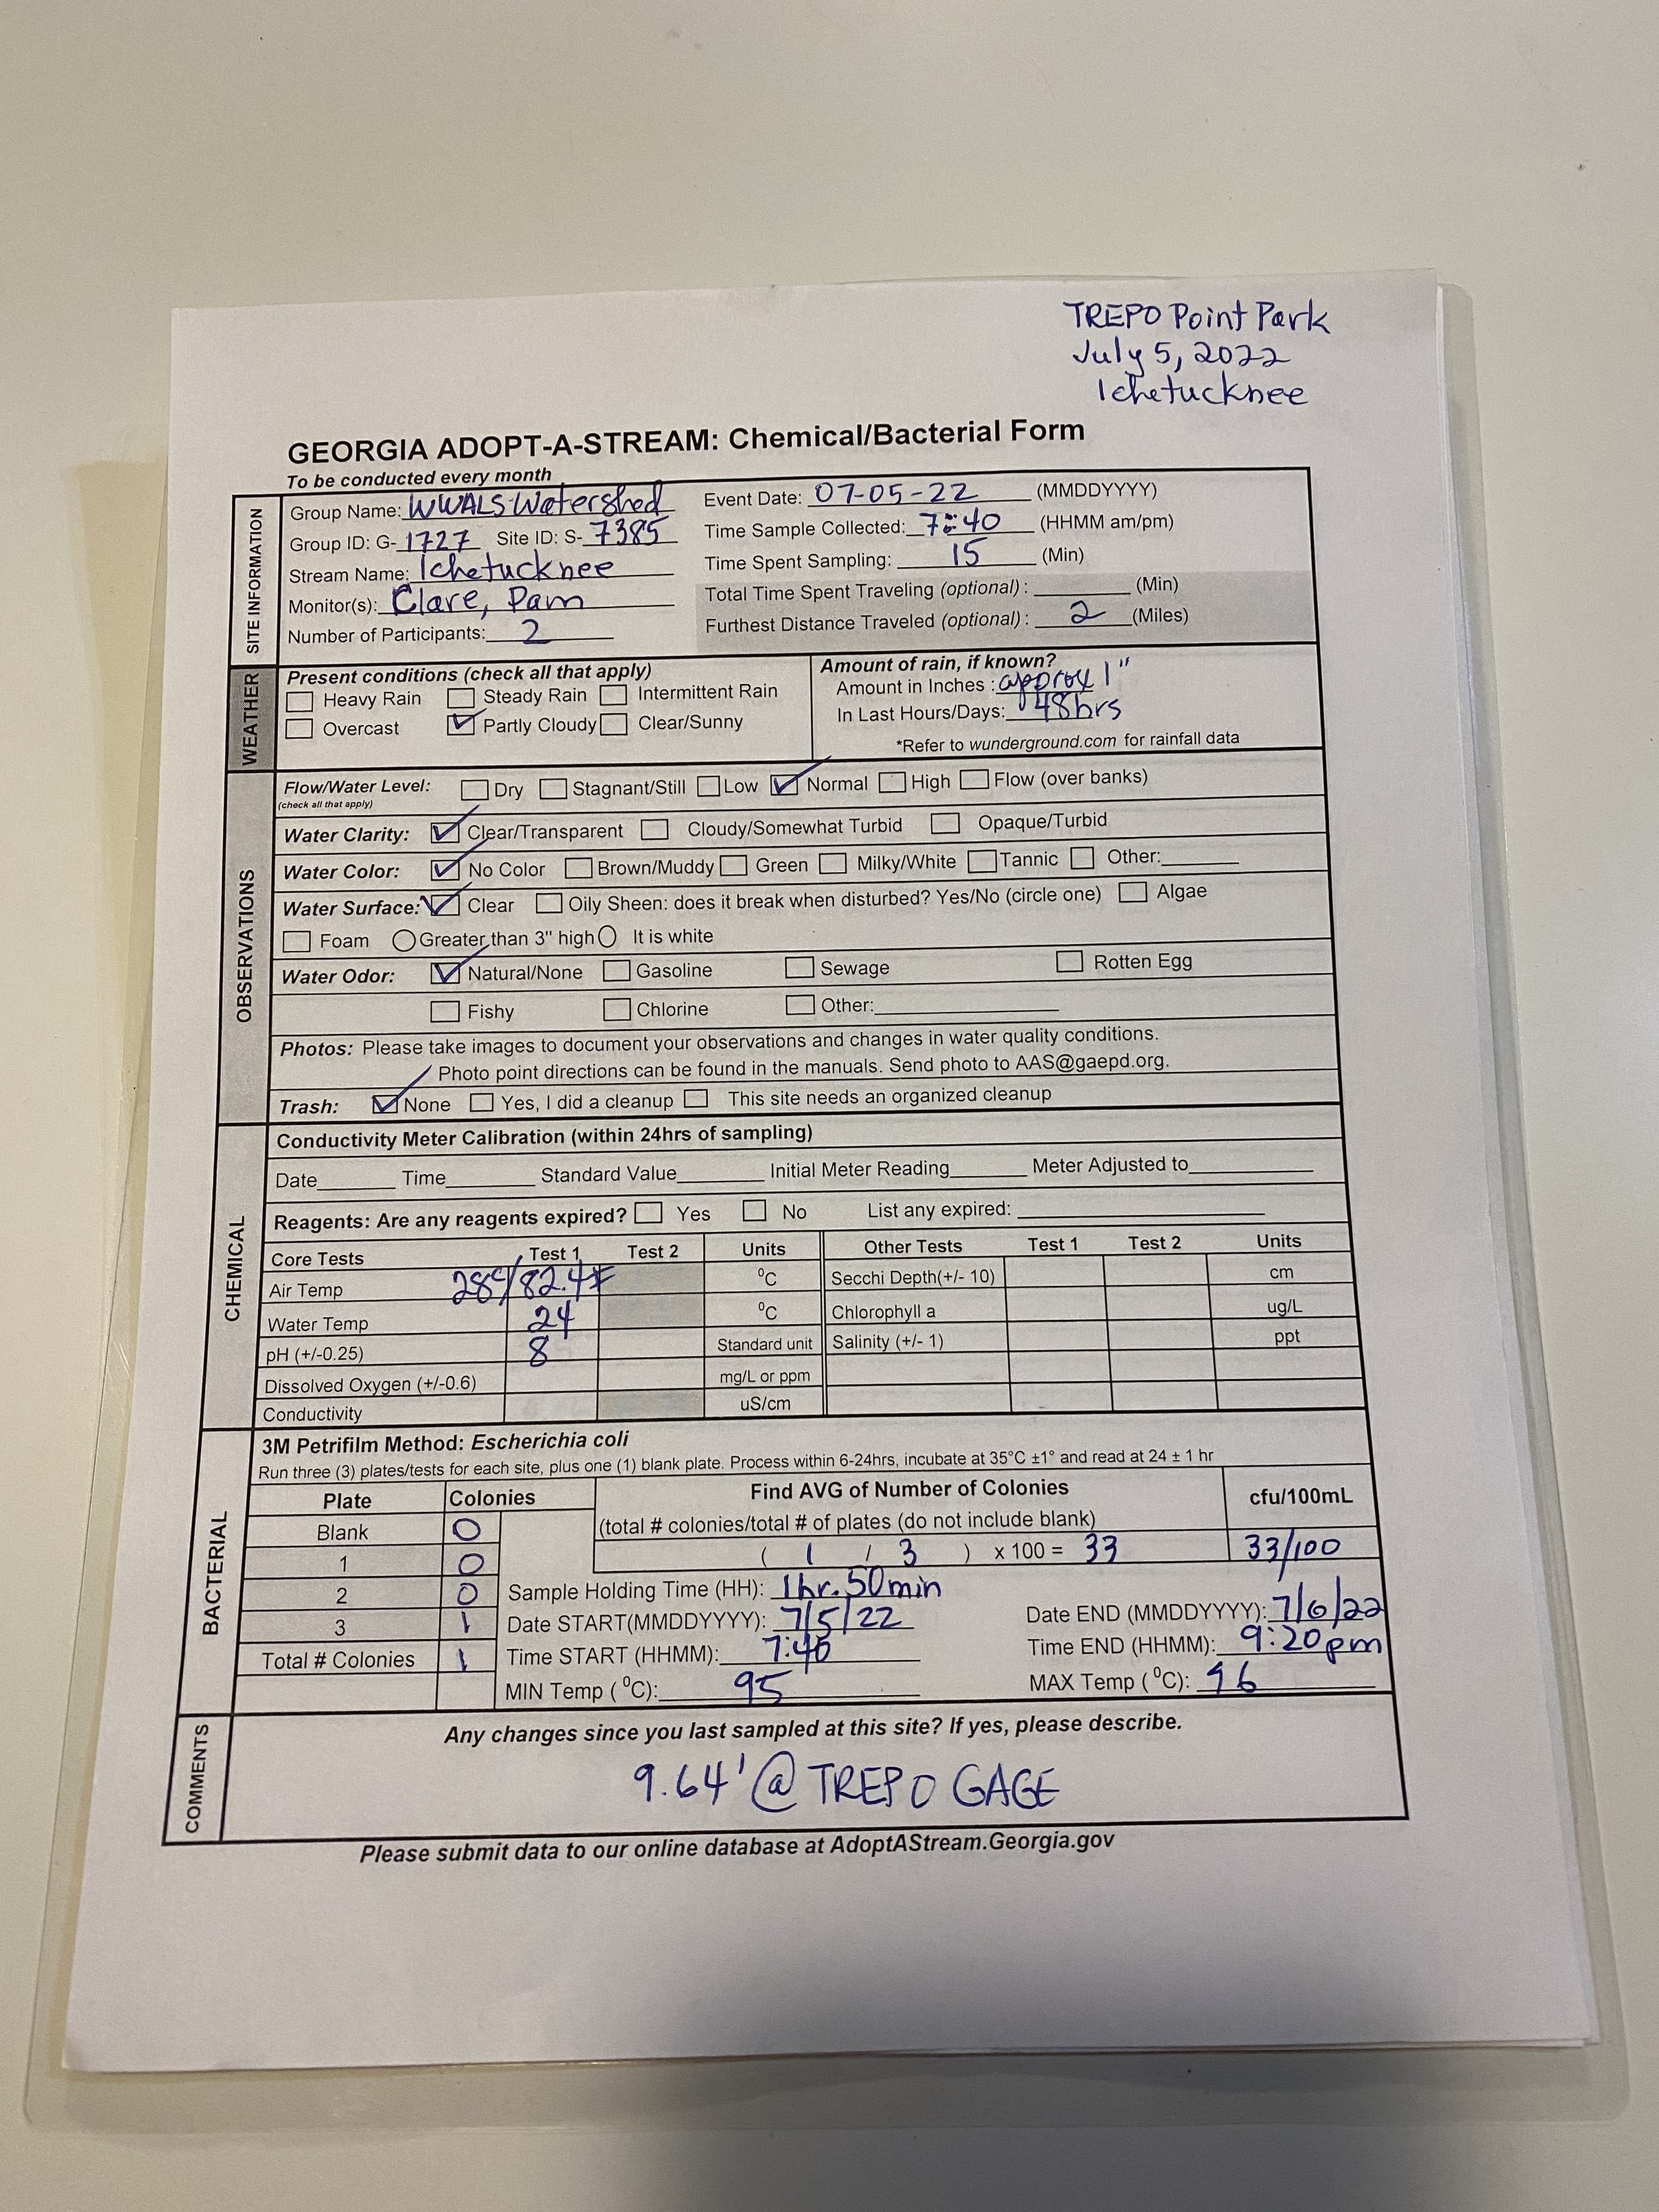 TREPO Point Park
July 5, 2022
Ichetucknee
GEORGIA ADOPT-A-STREAM: Chemical/Bacterial Form
To be conducted every month
SITE INFORMATION
Group Name: WWALS Watershed
Group ID: G- 1727 Site ID: S- 7385
Stream Name: Ichetucknee
Monitor(s): Clare, Pam
Number of Participants: 2
Event Date: 07-05-22 (MMDDYYYY)
Time Sample Collected: 7:40 (HHMM am/pm)
Time Spent Sampling: 15 (Min)
Total Time Spent Traveling (optional) : (Min)
Furthest Distance Traveled (optional) : 2 (Miles)
WEATHER
Present conditions (check all that apply)
Heavy Rain Steady Rain Intermittent Rain
Overcast Partly Cloudy Clear/Sunny
Amount of rain, if known?
Amount in Inches : approx 1"
In Last Hours/Days: 48hrs
*Refer to wunderground.com for rainfall data
OBSERVATIONS
Flow/Water Level: Dry Stagnant/Still Low Normal High Flow (over banks)
(check all that apply)
Water Clarity: Clear/Transparent Cloudy/Somewhat Turbid Opaque/Turbid
Water Color: No Color Brown/Muddy Green Milky/White Tannic Other:
Water Surface: Clear Oily Sheen: does it break when disturbed? Yes/No (circle one) Algae
Foam Greater than 3" high It is white
Water Odor: Natural/None Gasoline Sewage Rotten Egg
Fishy Chlorine Other:
Photos: Please take images to document your observations and changes in water quality conditions.
Photo point directions can be found in the manuals. Send photo to AAS@gaepd.org.
Trash: None Yes, I did a cleanup This site needs an organized cleanup
CHEMICAL
Conductivity Meter Calibration (within 24hrs of sampling)
Date Time Standard Value Initial Meter Reading Meter Adjusted to
Reagents: Are any reagents expired? Yes No List any expired:
Core Tests Test 1 Test 2 Units Other Tests Test 1 Test 2 Units
Air Temp 28c/82.4F °C Secchi Depth(+/- 10) cm
Water Temp 24 °C Chlorophyll a ug/L
pH (+/-0.25) 8 Standard unit Salinity (+/- 1) ppt
Dissolved Oxygen (+/-0.6) mg/L or ppm
Conductivity uS/cm
BACTERIAL
3M Petrifilm Method: Escherichia coli
Run three (3) plates/tests for each site, plus one (1) blank plate. Process within 6-24hrs, incubate at 35°C ±1° and read at 24 ± 1 hr
Plate Colonies
Blank 0
1 0
2 0
3 1
Total # Colonies 1
Find AVG of Number of Colonies cfu/100mL
(total # colonies/total # of plates (do not include blank)
( 1 / 3 ) x 100 = 33 33/100
Sample Holding Time (HH): 1hr. 50min
Date START(MMDDYYYY): 7/5/22 Date END (MMDDYYYY): 7/6/22
Time START (HHMM): 7:40 Time END (HHMM): 9:20pm
MIN Temp (°C): 95 MAX Temp (°C): 96
COMMENTS
Any changes since you last sampled at this site? If yes, please describe.
9.64' @ TREPO GAGE
Please submit data to our online database at AdoptAStream.Georgia.gov